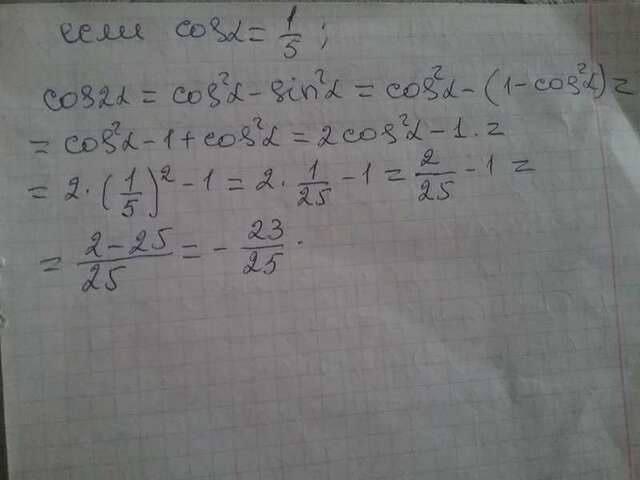 если cosα = 1/5 ;
cos2α = cos²α - sin²α = cos²α - (1 - cos²α) =
= cos²α - 1 + cos²α = 2cos²α - 1. =
= 2 · (1/5)² - 1 = 2 · 1/25 - 1 = 2/25 - 1 =
= (2 - 25)/25 = - 23/25.